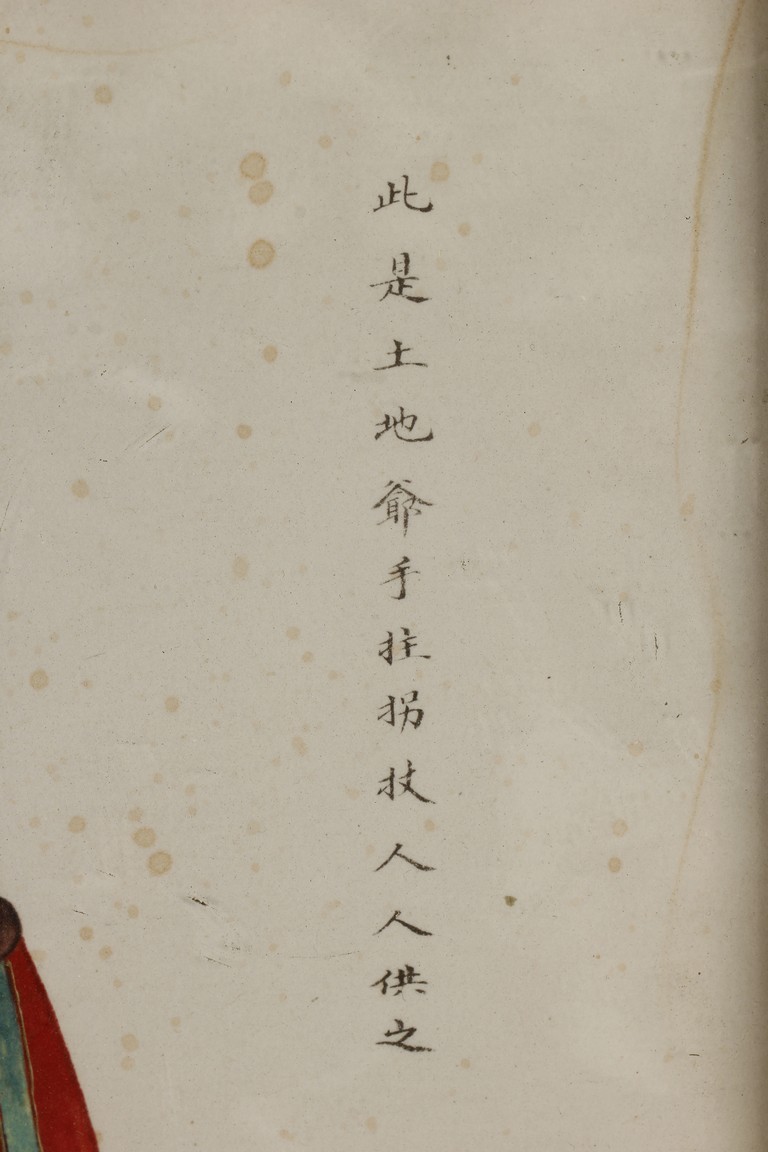 此是土地爺手拄拐扙人人供之